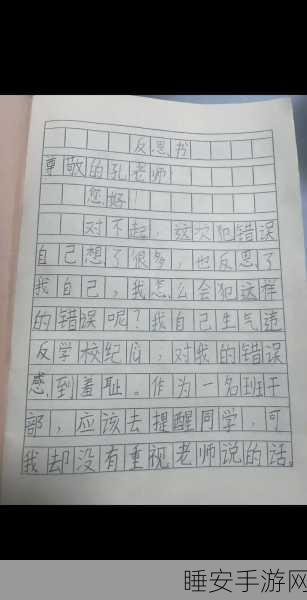 反思书
尊敬的孔老师
您好！
对不起，这次犯错误
自己想了很多，也反思了
我自己，我怎么会犯这样
的错误呢？我自己生气违
反学校纪律，对我的错误
感到羞耻。作为一名班干
部，应该去提醒同学，可
我却没有重视老师说的话。
睡安手游网